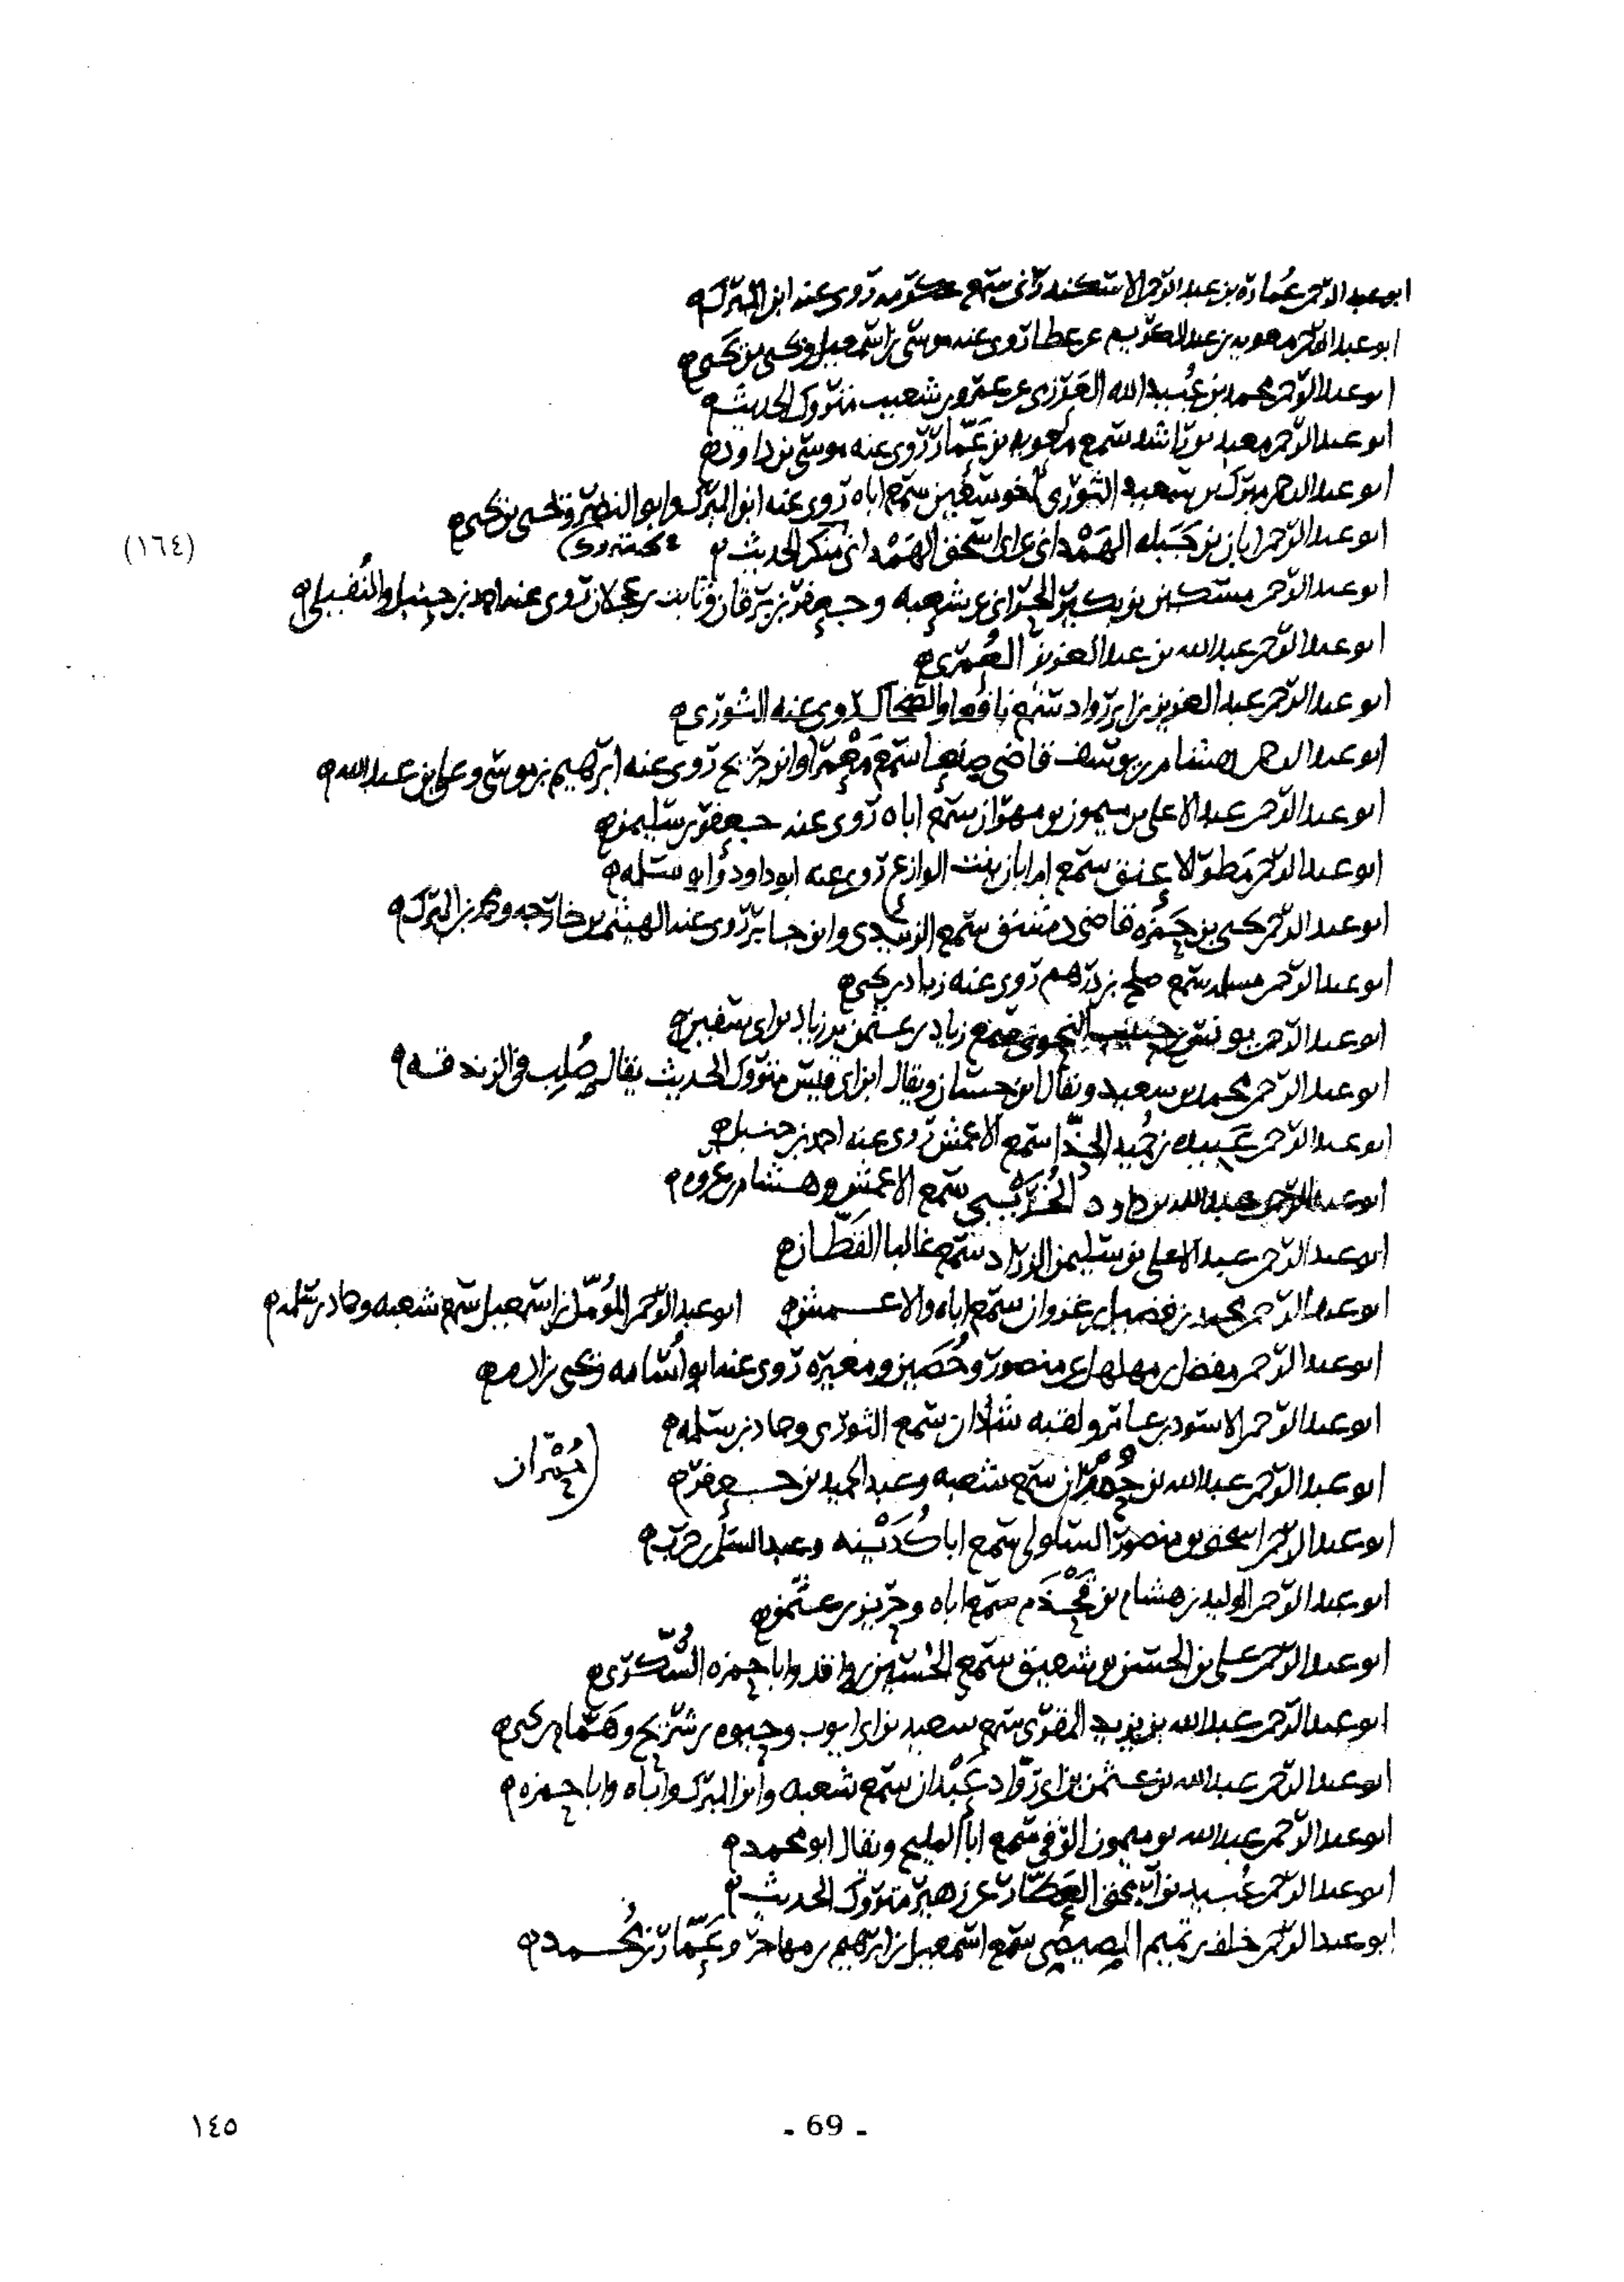 ابو عبد الرحمن عمارة بن عبد الرحمن الاسكندراني سمع عكرمه روى عنه ابن المبرك
ابو عبد الرحمن معويه بن عبد الكريم عن عطا روى عنه موسى بن اسمعيل ويحيى بن يحيى
ابو عبد الرحمن محمد بن عُبيد الله العَرْزمي عن عمرو بن شعيب متروك الحديث
ابو عبد الرحمن معبد بن راشد سمع معويه بن عَمّار روى عنه موسى بن داود
ابو عبد الرحمن مبرك بن سعيد الثوري اخو سفين سمع اباه روى عنه ابن المبرك وابو النضر ويحيى بن يحيى
ابو عبد الرحمن ابان بن جَبَله الهَمْداني عن ابي اسحق الهَمْداني منكر الحديث
(١٦٤)
ابو عبد الرحمن مسكين بن بكير الحراني عن شعبه وجعفر بن برقان وثابت بن عجلان روى عنه احمد بن حنبل والنُفيلي
ابو عبد الرحمن عبد الله بن عبد العزيز العُمري
ابو عبد الرحمن عبد العزيز بن ابي رواد سمع نافعا والضحاك روى عنه الثوري
ابو عبد الرحمن هشام بن يوسف قاضي صنعا سمع مَعْمرا وابن جريج روى عنه ابرهيم بن موسى وعلي بن عبد الله
ابو عبد الرحمن عبد الاعلى بن ميمون بن مهران سمع اباه روى عنه جعفر بن سليمن
ابو عبد الرحمن مطر الاعنق سمع ام ابان بنت الوازع روى عنه ابو داود وابو سلمه
ابو عبد الرحمن يحيى بن حَمزه قاضي دمشق سمع الزبيدي وابن جابر روى عنه الهيثم بن خارجه ومحمد بن المبرك
ابو عبد الرحمن مسلمه سمع صلح بن درهم روى عنه زياد بن يحيى
ابو عبد الرحمن يونس بن حبيب النحوي سمع زياد بن عثمن بن زياد بن ابي سفين
ابو عبد الرحمن محمد بن سعيد ويقال ابن حسان ويقال ابن ابي قيس متروك الحديث يقال صُلِب في الزندقه
ابو عبد الرحمن عَبيده بن حُميد الحذّا سمع الاعمش روى عنه احمد بن حنبل
ابو عبد الرحمن عبد الله بن داود الخُرَيْبي سمع الاعمش وهشام بن عروه
ابو عبد الرحمن عبد الاعلى بن سليمن الزراد سمع غالبا القَطّان
ابو عبد الرحمن محمد بن فضيل بن غزوان سمع اباه والاعمش ابو عبد الرحمن المُؤمّل بن اسمعيل سمع شعبه وحماد بن سلمه
ابو عبد الرحمن مفضل بن مهلهل عن منصور وحُصين ومغيره روى عنه ابو اُسامه ويحيى بن ادم
ابو عبد الرحمن الاسود بن عامر ولقبه شاذان سمع الثوري وحماد بن سلمه
ابو عبد الرحمن عبد الله بن حُمْران سمع شعبه وعبد الحميد بن جعفر
حُمْران
ابو عبد الرحمن اسحق بن منصور السلولي سمع ابا كُدَيْنه وعبد السلم بن حرب
ابو عبد الرحمن الوليد بن هشام بن قَحْذَم سمع اباه وحريز بن عثمن
ابو عبد الرحمن علي بن الحسن بن شقيق سمع الحُسين بن واقد وابا حمزه السُّكري
ابو عبد الرحمن عبد الله بن يزيد المقرئ سمع سعيد بن ابي ايوب وحيوه بن شريح وهَمّام بن يحيى
ابو عبد الرحمن عبد الله بن عثمن بن ابي رَوّاد عَبْدان سمع شعبه وابن المبرك واباه وابا حمزه
ابو عبد الرحمن عبد الله بن ميمون الرقي سمع ابا المليح ويقال ابو محمد
ابو عبد الرحمن عُبيد بن اسحق العَطّار عن زهير متروك الحديث
ابو عبد الرحمن خلف بن تميم المصيصي سمع اسمعيل بن ابرهيم بن مهاجر وعَمّار بن محمد
١٤٥
- 69 -